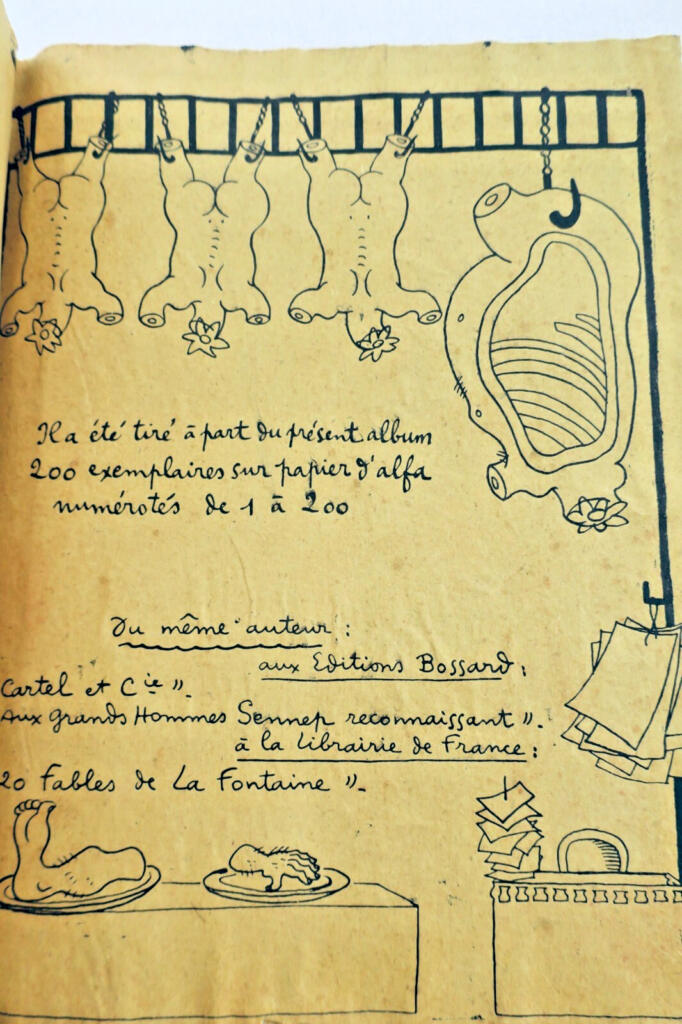 Il a été tiré à part du présent album
200 exemplaires sur papier d'alfa
numérotés de 1 à 200
Du même auteur :
aux Editions Bossard :
Cartel et Cie ".
Aux grands Hommes Sennep reconnaissant ".
à la Librairie de France :
20 Fables de La Fontaine ".